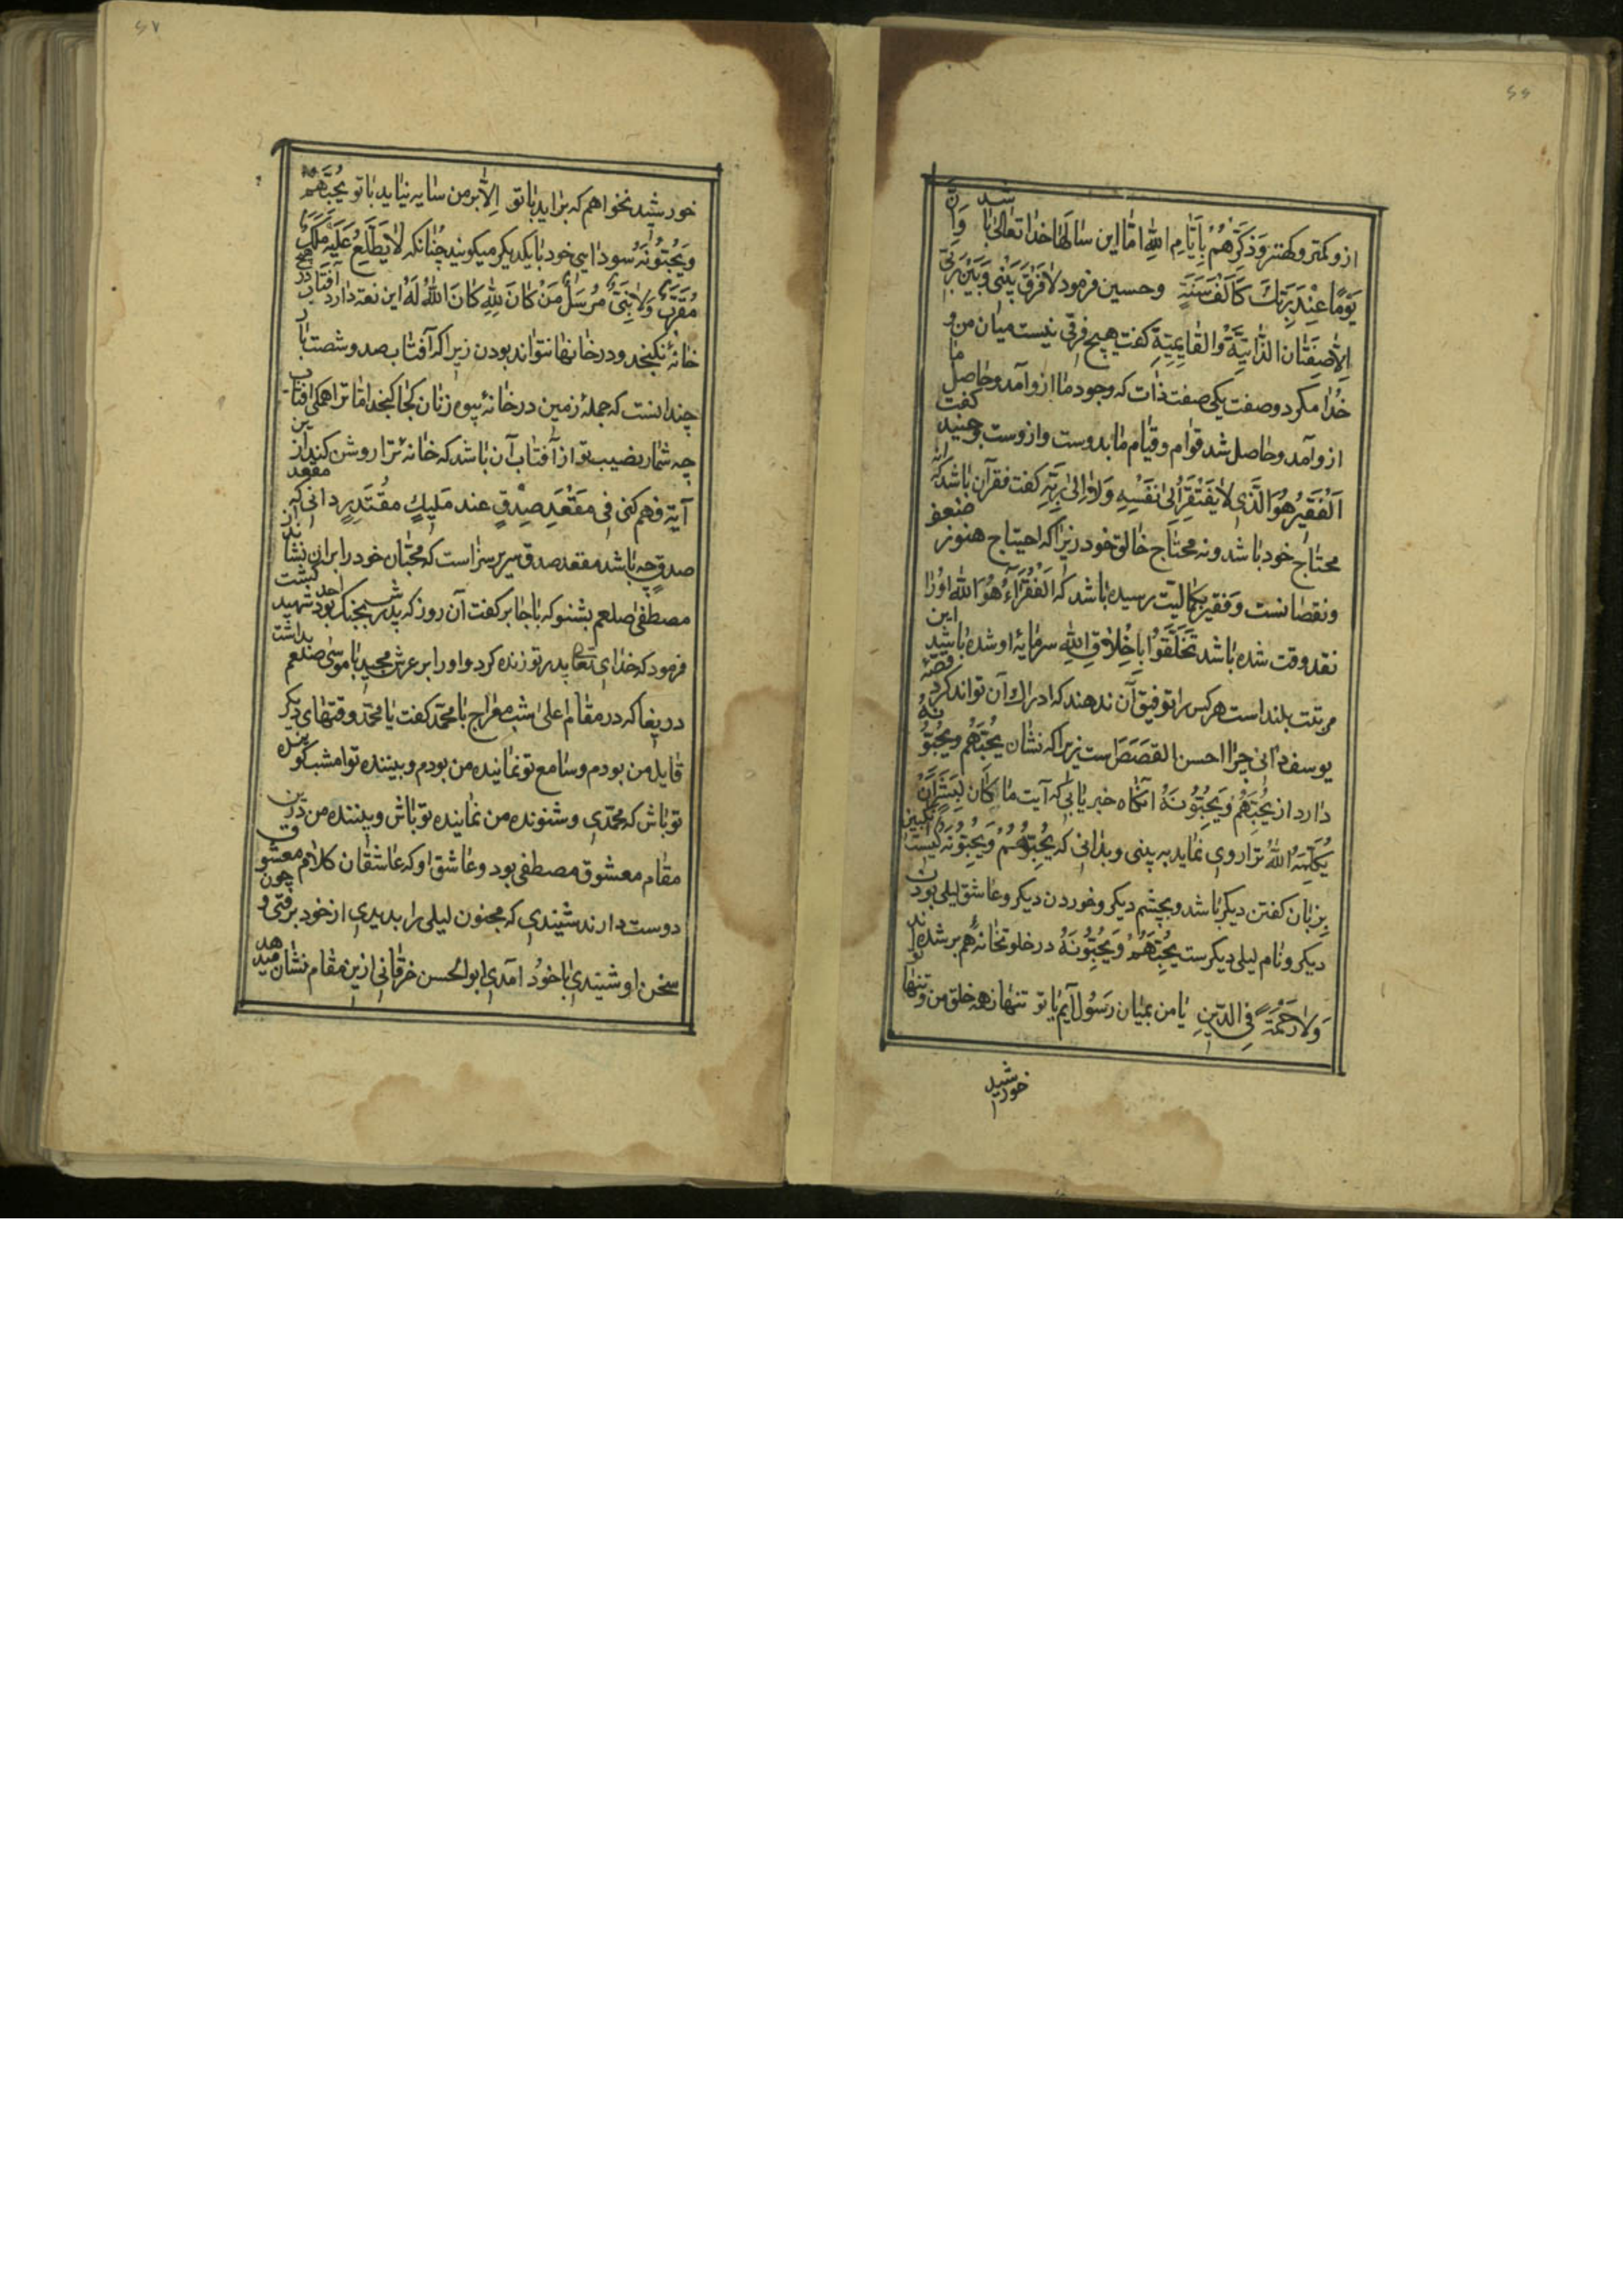 ۶۶
ازو کمتر و کهتر وَذَکِّرْهُمْ بِاَیّامِ اللهِ امّا این سالها خدا تعالی با شد وَاِنَّ
یَوْمًا عِنْدَ رَبِّكَ کَاَلْفِ سَنَةٍ وحسین فرمود لافَرْقَ بَیْنی وَبَیْنَ رَبّی
اِلاّ صِفَتان الذّاتِیَّةُ وَالقایِمِیَّةِ کفت هیچ فرقی نیست میان من و
خُدا مکر دو صفت یکی صفت ذات که وجود ما ازو آمد وحاصل ما
ازو آمد وحاصل شد قوام و قیام ما بدوست وازوست وجنید کفت
اَلْفَقیرُ هُوَالَّذی لا یَفْتَقِرُ اِلیٰ نَفْسِهِ وَلا اِلیٰ رَبِّهِ کفت فقر آن باشد که نه
محتاج خود باشد ونه محتاج خالق خود زیرا که احتیاج هنوز ضعف
ونقصانست وَفقیر بکمالیّت رسیده باشد که اَلْفُقَرآءُ هُوَ الله اورا
نقد وقت شده باشد تَخَلَّقُوا بِاَخْلاقِ اللهِ سرمایۀ او شده باشد این
مرتبت بلند است هرکس را توفیق آن ندهند که ادراك آن تواند کرد قصّۀ
یوسف دانی چرا احسن القَصَصَ است زیرا که نشان یُحِبُّهُمْ ویُحِبُّونَهُ
دارد از یُحِبُّهُمْ وَیُحِبُّونَهُ انکاه خبر یابی که آیت مٰا کٰانَ لِبَشَرٍ اَنْ
یُکَلِّمَهُ اللهُ ترا روی نماید به بینی وبدانی که یُحِبُّهُمْ وَیُحِبُّونَهُ چیست
بزبان کفتن دیکر باشد وبچشم دیکر وخوردن دیکر وعاشق لیلی بودن
دیکر ونام لیلی دیکرست یُحِبُّهُمْ وَیُحِبُّونَهُ در خلوتخانه هم برشده اند
وَلارَحْمَةً فِی الدّینِ یا من بمیان رَسُول آیم با تو تنها زهمه خلق من وتو تنها
خورشید
۶۷
خورشید نخواهم که براید با تو اِلاّ بر من سایه نیاید با تو یُحِبُّهُمْ
وَیُحِبُّونَهُ سودای خود با یکدیکر میکویند چُنانکه لا یَطَّلِعُ عَلَیْهِ مَلَكٌ
مُقَرَّبٌ وَلانَبِیٌّ مُرْسَلٌ مَنْ کانَ لِلّهِ کانَ اللهُ لَهُ این نعة دارد آفتاب در هیچ
خانۀ نکنجد ودر خانها نتواند بودن زیرا که آفتاب صد وشصت بار
چندانست که جملۀ زمین در خانۀ پیوه زنان کجا کنجد امّا ترا همکی افتاب
چه شمار نصیب تو از آفتاب آن باشد که خانۀ ترا روشن کند از ین
آیة فهم کنی فی مَقْعَدِ صِدْقٍ عند مَلیكٍ مقُتَدِرٍ دانی که مقعد
صدق چه باشد مقعد صدق سریر سرّاست که محبّان خود را بران نشاند از
مصطفی صلعم بشنو که باجابر کفت آن روز که پدرش بجنك احد شهید کشت بود
فرمود که خدای تعالی پدر تو زنده کرد واورا بر عرش مجید با موسی صلعم بداشت
دریغا که در مقام اعلی شب معراج با محمّد کفت یا محمّد وقتهای دیکر
قایل من بودم وسامع تو نماینده من بودم وبیننده تو امشب کوینده
تو باش که محمّدی وشنونده من نماینده تو باش وبیننده من درین
مقام معشوق مصطفی بود وعاشق او که عاشقان کلام معشوق
دوست دارند شنیدی که مجنون لیلی را بدیدی از خود برفتی و چون
سخن او شنیدی با خوُد آمدی ابوالحسن خرقانی ازین مقام نشان میدهد